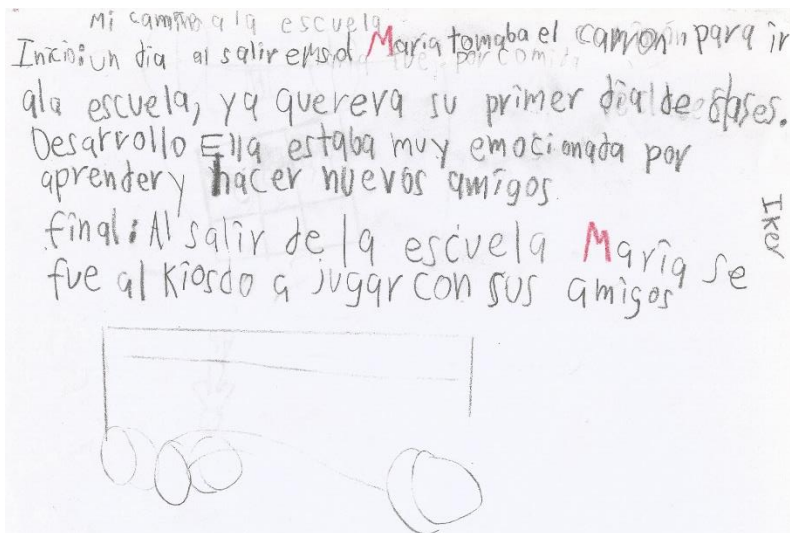 Mi camino a la escuela
Inicio: un dia al salir el sol Maria tomaba el camion para ir
ala escuela, ya quereva su primer día de clases.
Desarrollo Ella estaba muy emocionada por
aprender y hacer nuevos amigos
final: Al salir de la escuela Maria se
fue al Kiosdo a jugar con sus amigos
Iker